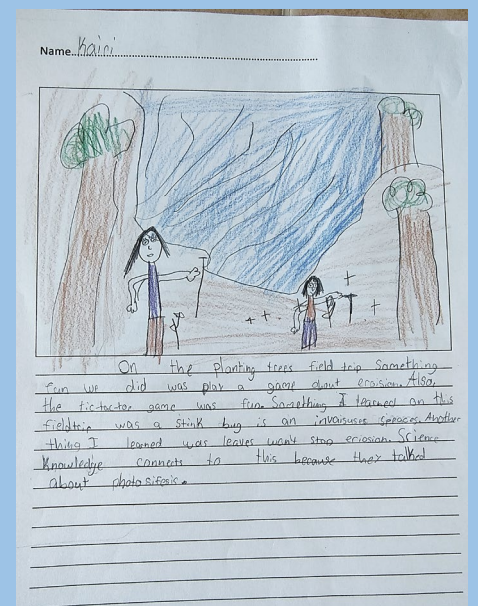 Name. Kairi
On the planting trees field trip Something
fun we did was play a game about eroision. Also,
the tic-tac-toe game was fun. Something I learned on this
fieldtrip was a stink bug is an invaisuses speaces. Another
thing I learned was leaves wan't stop erosion. Science
Knowledge connects to this because they talked
about photosifesis.